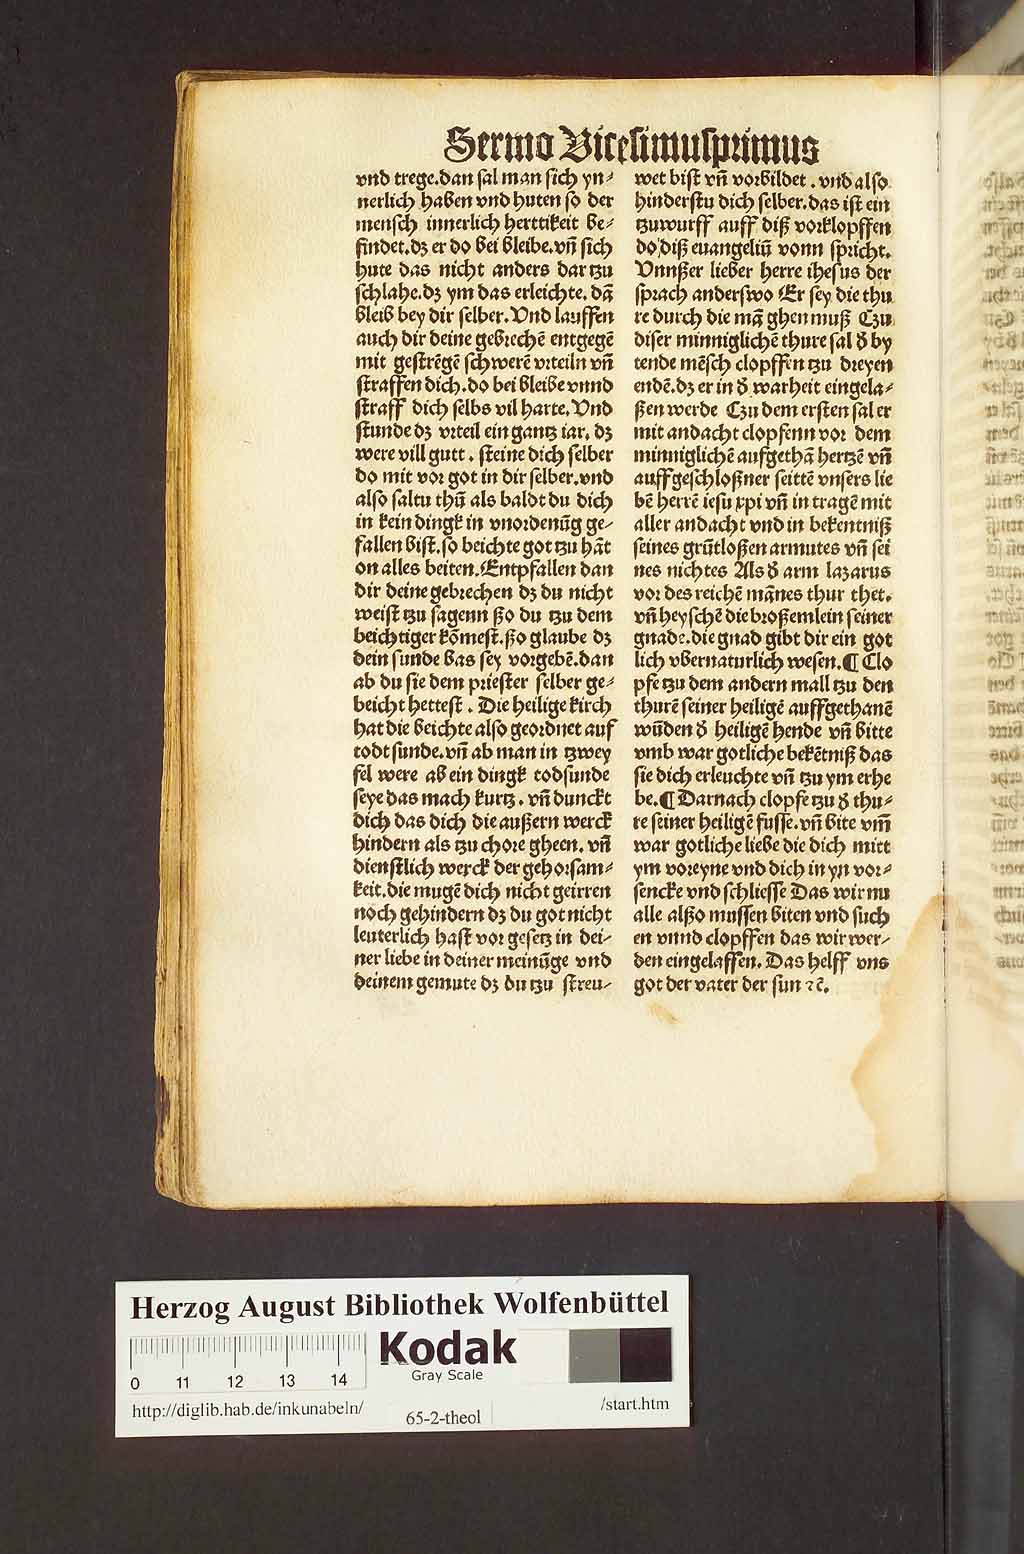 Sermo Vicesimusprimus
vnd trege.dan sal man sich yn⸗
nerlich haben vnd huten so der
mensch innerlich herttikeit be⸗
findet.dz er do bei bleibe.vn̄ sich
hute das nicht anders dar tzu
schlahe.dz ym das erleichte.dā
bleib bey dir selber.Vnd lauffen
auch dir deine gebrechē entgegē
mit gestrēgē schwerē vrteiln vn̄
straffen dich.do bei bleibe vnnd
straff dich selbs vil harte.Vnd
stunde dz vrteil ein gantz iar.dz
were vill gutt. steine dich selber
do mit vor got in dir selber.vnd
also saltu thū als baldt du dich
in kein dingk in vnordenūg ge⸗
fallen bist.so beichte got tzu hāt
on alles beiten.Entpfallen dan
dir deine gebrechen dz du nicht
weist tzu sagenn ßo du tzu dem
beichtiger kōmest.ßo glaube dz
dein sunde bas sey vorgebē.dan
ab du sie dem priester selber ge⸗
beicht hettest. Die heilige kirch
hat die beichte also geordnet auf
todt sunde.vn̄ ab man in tzwey
fel were ab ein dingk todsunde
seye das mach kurtz. vn̄ dunckt
dich das dich die außern werck
hindern als tzu chore gheen. vn̄
dienstlich werck der gehorsam⸗
keit.die mugē dich nicht geirren
noch gehindern dz du got nicht
leuterlich hast vor gesetz in dei⸗
ner liebe in deiner meinūge vnd
deinem gemute dz du tzu streu⸗
wet bist vn̄ vorbildet. vnd also
hinderstu dich selber.das ist ein
tzuwurff auff diß vorklopffen
do diß euangeliū vonn spricht.
Vnnßer lieber herre ihesus der
sprach anderswo Er sey die thu
re durch die mā ghen muß Czu
diser minniglichē thure sal d̄ by
tende mēsch clopffen tzu dreyen
endē.dz er in d̄ warheit eingela⸗
ßen werde Czu dem ersten sal er
mit andacht clopfenn vor dem
minniglichē aufgethā hertzē vn̄
auffgeschloßner seittē vnsers lie
bē herrē iesu xpi vn̄ in tragē mit
aller andacht vnd in bekentniß
seines grūtloßen armutes vn̄ sei
nes nichtes Als d̄ arm lazarus
vor des reichē mānes thur thet.
vn̄ heyschē die broßemlein seiner
gnade.die gnad gibt dir ein got
lich vbernaturlich wesen.¶ Clo
pfe tzu dem andern mall tzu den
thurē seiner heiligē auffgethanē
wūden d̄ heiligē hende vn̄ bitte
vmb war gotliche bekētniß das
sie dich erleuchte vn̄ tzu ym erhe
be.¶ Darnach clopfe tzu d̄ thu⸗
re seiner heiligē fusse.vn̄ bite vm̄
war gotliche liebe die dich mitt
ym voreyne vnd dich in yn vor⸗
sencke vnd schliesse Das wir nu
alle alßo mussen biten vnd such
en vnnd clopffen das wir wer⸗
den eingelassen. Das helff vns
got der vater der sun ⁊c̄.
Herzog August Bibliothek Wolfenbüttel
Kodak
Gray Scale
0 11 12 13 14
http://diglib.hab.de/inkunabeln/
65-2-theol
/start.htm